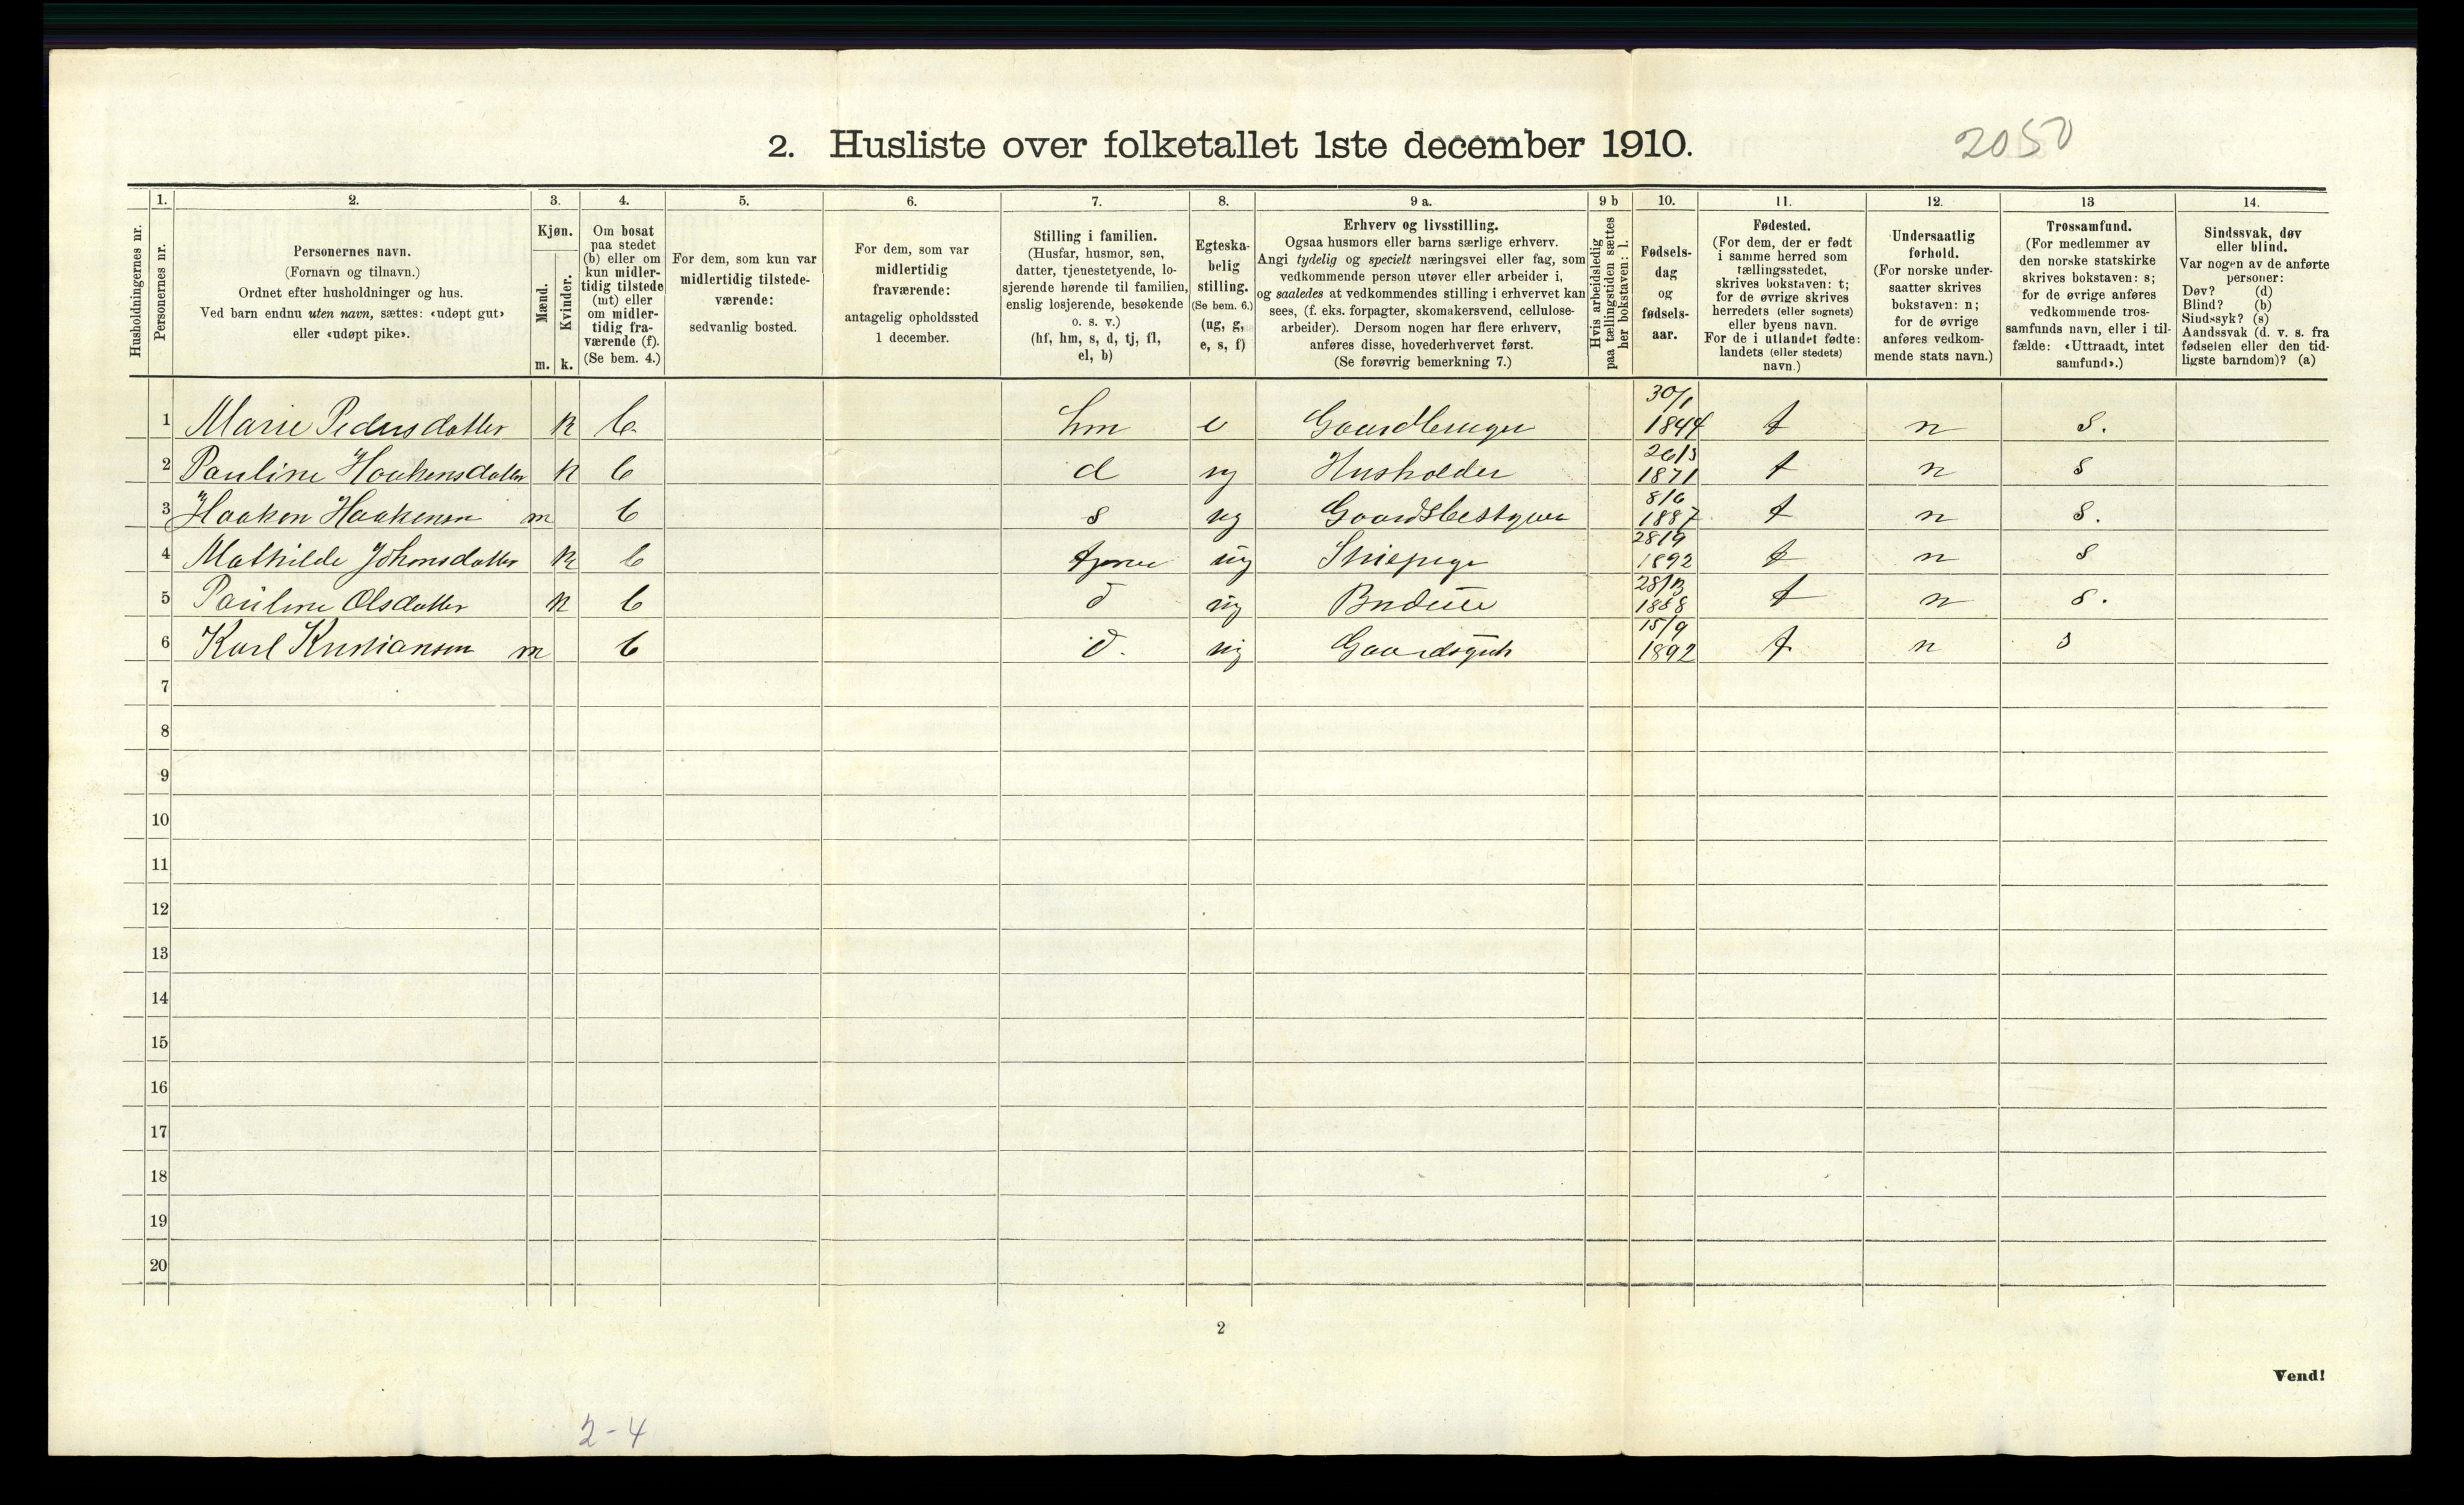 2. Husliste over folketallet 1ste december 1910.
2050
Husholdningernes nr.
1.
Personernes nr.
2.
Personernes navn.
(Fornavn og tilnavn.)
Ordnet efter husholdninger og hus.
Ved barn endnu uten navn, sættes: «udøpt gut»
eller «udøpt pike».
3.
Kjøn.
Mænd.
Kvinder.
m. k.
4.
Om bosat
paa stedet
(b) eller om
kun midler-
tidig tilstede
(mt) eller
om midler-
tidig fra-
værende (f).
(Se bem. 4.)
5.
For dem, som kun var
midlertidig tilstede-
værende:
sedvanlig bosted.
6.
For dem, som var
midlertidig
fraværende:
antagelig opholdssted
1 december.
7.
Stilling i familien.
(Husfar, husmor, søn,
datter, tjenestetyende, lo-
sjerende hørende til familien,
enslig losjerende, besøkende
o. s. v.)
(hf, hm, s, d, tj, fl,
el, b)
8.
Egteska-
belig
stilling.
(Se bem. 6.)
(ug, g,
e, s, f)
9 a.
Erhverv og livsstilling.
Ogsaa husmors eller barns særlige erhverv.
Angi tydelig og specielt næringsvei eller fag, som
vedkommende person utøver eller arbeider i,
og saaledes at vedkommendes stilling i erhvervet kan
sees, (f. eks. forpagter, skomakersvend, cellulose-
arbeider). Dersom nogen har flere erhverv,
anføres disse, hovederhvervet først.
(Se forøvrig bemerkning 7.)
9 b
Hvis arbeidsledig
paa tællingstiden sættes
her bokstaven: l.
10.
Fødsels-
dag
og
fødsels-
aar.
11.
Fødested.
(For dem, der er født
i samme herred som
tællingsstedet,
skrives bokstaven: t;
for de øvrige skrives
herredets (eller sognets)
eller byens navn.
For de i utlandet fødte:
landets (eller stedets)
navn.)
12.
Undersaatlig
forhold.
(For norske under-
saatter skrives
bokstaven: n;
for de øvrige
anføres vedkom-
mende stats navn.)
13
Trossamfund.
(For medlemmer av
den norske statskirke
skrives bokstaven: s;
for de øvrige anføres
vedkommende tros-
samfunds navn, eller i til-
fælde: «Uttraadt, intet
samfund».)
14.
Sindssvak, døv
eller blind.
Var nogen av de anførte
personer:
Døv? (d)
Blind? (b)
Sindssyk? (s)
Aandssvak (d. v. s. fra
fødselen eller den tid-
ligste barndom)? (a)
1 Marie Pedersdatter k b. hm e Gaardbruger 30/1 1844 t n s.
2 Pauline Haakensdatter k b d ug Husholder 1871 t n s
3 Haaken Haakensen m b s ug Gaardsbestyrer 8/6 1887 t n s.
4 Mathilde Johnsdatter k b ug 28/9 1892 t n s
5 Pauline Olsdatter k b d ug Budeie 1888 t n s.
6 Karl Kristiansen m b d. ug Gaardsgut 15/9 1892 t n s
7
8
9
10
11
12
13
14
15
16
17
18
19
20
2
Vend!
2-4